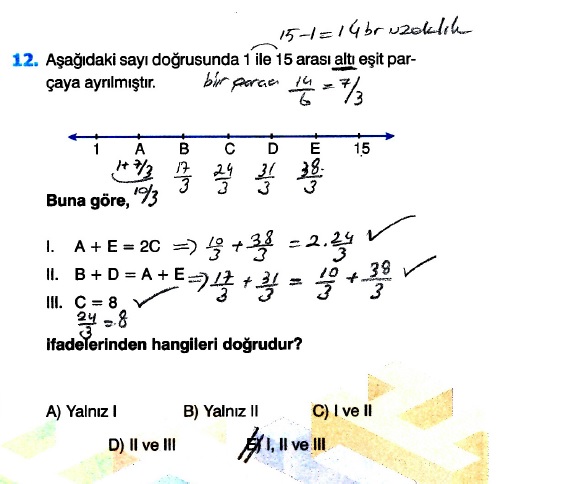 15-1=14br uzaklık
12. Aşağıdaki sayı doğrusunda 1 ile 15 arası altı eşit par-
çaya ayrılmıştır. bir parça 14/6 = 7/3
1 A B C D E 15
1+7/3 17/3 24/3 31/3 38/3
10/3
Buna göre,
I. A + E = 2C => 10/3 + 38/3 = 2.24/3 ✓
II. B + D = A + E => 17/3 + 31/3 = 10/3 + 38/3 ✓
III. C = 8 ✓
24/3 = 8
ifadelerinden hangileri doğrudur?
A) Yalnız I B) Yalnız II C) I ve II
D) II ve III E) I, II ve III